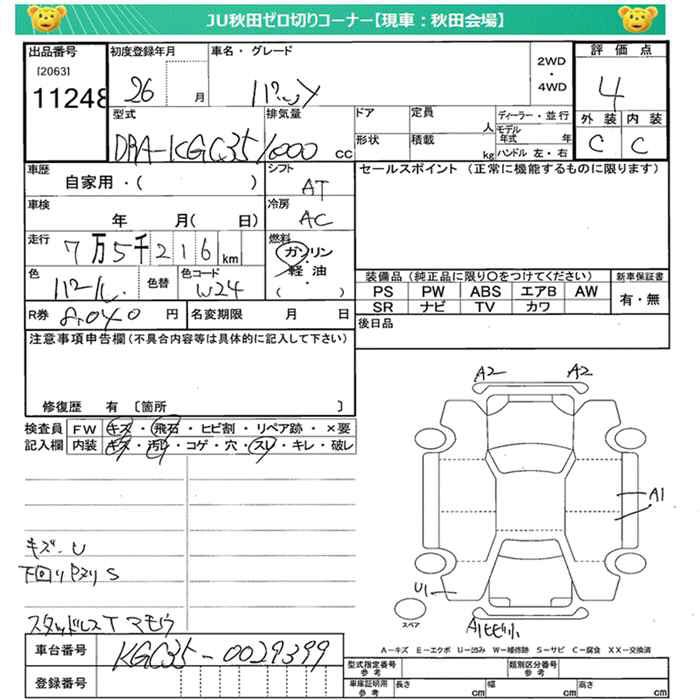 JU秋田ゼロ切りコーナー【現車：秋田会場】
出品番号
[2063]
11248
初度登録年月
26 月
車名・グレード
パッソ
2WD
・
4WD
評価点
4
外装 内装
C C
型式
DBA-KGC35
排気量
1000 cc
ドア
形状
定員
人
積載
kg
ディーラー・並行
モデル年式 年
ハンドル 左・右
車歴
自家用・( )
シフト
AT
セールスポイント (正常に機能するものに限ります)
車検
年 月( 日)
冷房
AC
走行
7万5千216km
燃料
ガソリン
・
軽油
( )
色
パール
色替
色コード
W24
装備品 (純正品に限り○をつけてください)
PS PW ABS エアB AW
SR ナビ TV カワ
新車保証書
有・無
R券 8,040 円
名変期限 月 日
後日品
注意事項申告欄(不具合内容等は具体的に記入して下さい)
修復歴 有 〔箇所 〕
検査員
記入欄
FW キズ・飛石・ヒビ割・リペア跡・×要
内装 キズ・汚れ・コゲ・穴・スレ・キレ・破レ
キズ・U
下回りサビS
スタッドレスT マモウ
A2
A2
A1
U1
A1ヒビ小
スペア
A－キズ E－エクボ U－凹み W－補修跡 S－サビ C－腐食 XX－交換済
車台番号
KGC35-0029399
登録番号
型式指定番号
参考
類別区分番号
参考
車庫証明用
参考
長さ cm
幅 cm
高さ cm